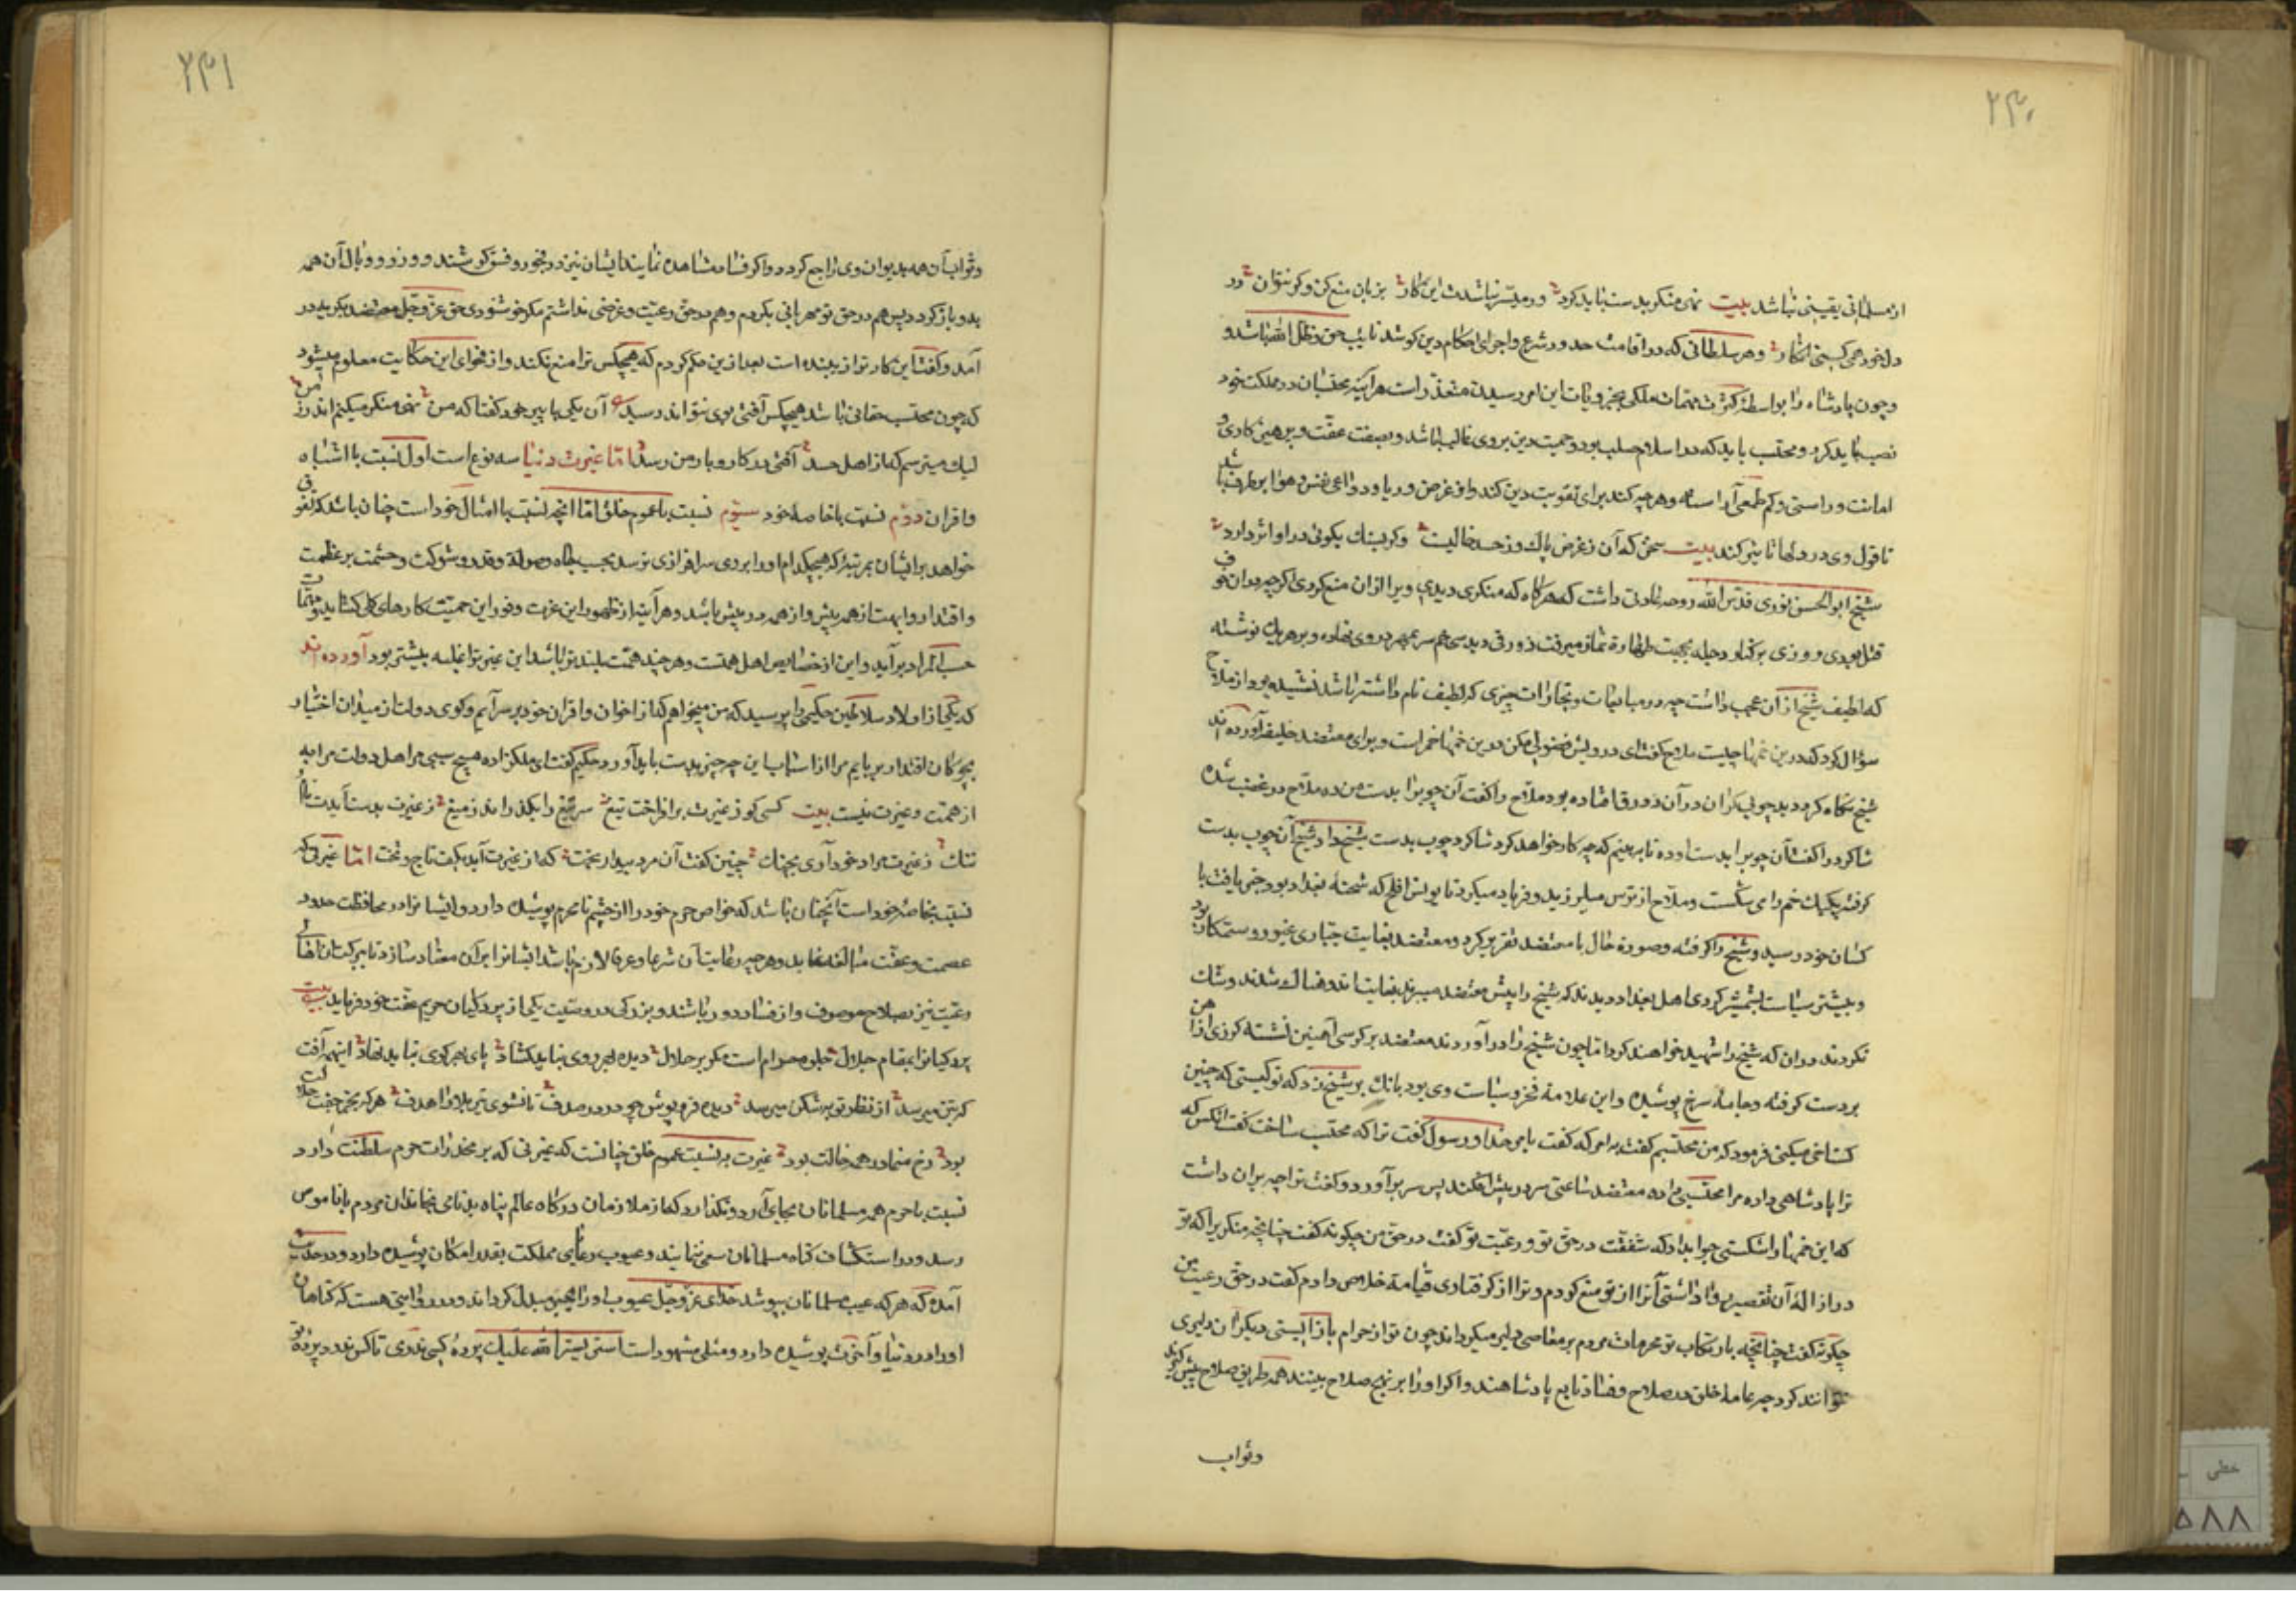 ۲۴۰
از مسلمانی یقینی نباشد بیت نهی منکر بدست باید کرد ور میسر نباشدت این کار بزبان منع کن وگر نتوان در
دل خود هم کسی انکار و هر سلطانی که در اقامت حدود شرع و اجرای احکام دین کوشد نایب حق و ظل الله باشد و
و چون پادشاه را بواسطه کثرت مهمات ملکی بجزویات این امر رسیدن متعذر است هر آینه محتسبان در مملکت خود
نصب باید کرد و محتسب باید که در اسلام صلب بود و حمیت دین بروی غالب باشد و بصفت عفت و پرهیزکاری و
امانت و راستی و کم طمعی آراسته و هر چه کند برای تقویت دین کند و از غرض و ریا و دواعی نفس و هوا بر طرف باشد
تا قول وی در دلها تاثیر کند بیت سخن که آن ز غرض پاک و ز حسد خالیست گر بسنگ بگوئی در او اثر دارد
شیخ ابوالحسن نوری قدس الله روحه عادتی داشت که هرگاه که منکری دیدی ویرا از آن منع کردی اگر چه در آن خوف
قتل بودی و روزی بر کنار دجله بجهت طهارة نماز میرفت زورقی دید سی خم سر بمهر در وی نهاده و بر هر یک نوشته
که لطیف شیخ از آن عجب داشت چه در مبایعات و تجارات چیزی که لطیف نام داشته باشد نشنیده بود از ملاح
سؤال کرد که درین خمها چیست ملاح گفت ای درویش فضولی مکن درین خمها خمر است و برای معتضد خلیفه آورده اند
شیخ نگاه کرد دید چوبی گران در آن زورق افتاده بود ملاح را گفت آن چوبرا بدست من ده ملاح در غضب شده
شاگرد را گفت آن چوبرا بدست او ده تا ببینم که چه کار خواهد کرد شاگرد چوب بدست شیخ داد شیخ آن چوب بدست
گرفته یکیک خم را می شکست و ملاح از ترس میلرزید و فریاد میکرد تا یونس افلح که شحنه بغداد بود خبر یافت با
کسان خود رسید و شیخ را گرفته و صورة حال با معتضد تقریر کرد و معتضد بغایت جباری غیور و ستمکار بود
و بیشتر سیاست بشمشیر کردی اهل بغداد دیدند که شیخ را پیش معتضد میبرند بغایت اندوهناک شدند و شک
نکردند در آن که شیخ را شهید خواهند کرد اما چون شیخ را در آوردند معتضد بر کرسی آهنین نشسته گرزی از آهن
بر دست گرفته و جامه سرخ پوشیده و این علامة قهر و سیاست وی بود بانک بر شیخ زد که تو کیستی که چنین
گستاخی میکنی فرمود که من محتسبم گفت به امر که گفت بامر خدا و رسول گفت ترا که محتسب ساخت گفت آنکس که
ترا پادشاهی داده مرا محتسبی داده معتضد ساعتی سر در پیش افکند پس سر بر آورد و گفت ترا چه بر آن داشت
که این خمها را شکستی جواب داد که شفقت در حق تو و رعیت تو گفت در حق من چگونه گفت چنانچه منکر یرا که تو
در ازالهٔ آن تقصیر روا داشتی آنرا از تو منع کردم و ترا از گرفتاری قیامة خلاصی دادم گفت در حق رعیت من
چگونه گفت چنانچه بارتکاب تو محرمات مردم بر معاصی دلیر میگرداند چون تو از حرام باز ایستی دیگران دلیری
نتوانند کرد چه عامهٔ خلق در صلاح و فساد تابع پادشاهند و اگر او را بر نهج صلاح بینند همه طریق صلاح پیش گیرند
وثواب
۲۴۱
وثواب آن همه بدیوان وی راجع گردد و اگر فساد مشاهده نمایند ایشان نیز در فجور و فسق کوشند و وزر و وبال آن همه
بدو باز گردد پس هم در حق تو مهربانی کردم و هم در حق رعیت و غرضی نداشتم مگر خوشنودی حق عز و جل معتضد بگریه در
آمد و گفت این کار ترا زیبنده است بعد ازین حکم کردم که هیچکس ترا منع نکند و از فحوای این حکایت معلوم میشود
که چون محتسب حقانی باشد هیچکس آفتی بوی نتواند رسید آن یکی با پیر خود گفتا که من نهی منکر میکنم اندر زمن
لیک میترسم که از اهل حسد آفتی در کار و بار من رسد اما غیرت دنیا سه نوع است اول نسبت با اشباه
و اقران دوم نسبت با خاصهٔ خود سیوم نسبت با عموم خلق اما آنچه نسبت با امثال خود است چنان باشد که تفوق
خواهد بر ایشان بمرتبهٔ که هیچکدام او را بروی سرافرازی نرسد بحسب جاه و صولة و قدر و شوکت و حشمت بر عظمت
و اقتدار و ابهت از همه بیش و از همه در پیش باشد و هر آینه از ظهور این عزت و فور این حمیت کارهای کلی گشاید و مهمات
حسب المراد بر آید و این از خصایص اهل همتست و هر چند همت بلندتر باشد این غیرت را غلبه بیشتر بود آورده اند
که یکی از اولاد سلاطین حکیمی را پرسید که من میخواهم که از اخوان و اقران خود بر سر آیم و گوی دولت از میدان اختیار
بچوگان اقتدار بربایم مرا از اسباب این چه چیز بدست باید آورد حکیم گفت ای ملکزاده هیچ سببی مر اهل دولت مرا به
از همت و غیرت نیست بیت کسی کو ز غیرت بر افراخت تیغ سر تیغ را بگذراند ز میغ ز غیرت بدست آیدت نام و
ننگ ز غیرت مراد خود آری بچنگ چنین گفت آن مرد بیدار بخت که از غیرت آید بکف تاج و تخت اما غیرتی که
نسبت بخاصهٔ خود است آنچنان باشد که خواص حرم خود را از چشم نامحرم پوشیده دارد و ایشانرا در محافظت حدود
عصمت و عفت مبالغه نماید و هر چه رعایت آن شرعا و عرفا لازم باشد ایشانرا بر آن معتاد سازد تا ببرکت آن اهالی
رعیت نیز بصلاح موصوف و از فساد دور باشند و بزرگی در وصیت یکی از پردگیان حریم عفت خود فرماید بیت
پردگیانرا بمقام جلال جلوه حرام است مگر بر حلال دیده بهر روی نباید گشاد پای بهر کوی نباید نهاد اینهمه آفت
که بتن میرسد از نظر توبه شکن میرسد دیده فرو پوش چو در در صدف تا نشوی تیر بلا را هدف هر که نه جفت حلالت
بود رخ منما در همه حالت بود غیرت به نسبت عموم خلق چنانست که غیرتی که بر مخدرات حرم سلطنت دارد
نسبت با حرم همه مسلمانان بجای آرد و نگذارد که از ملازمان درگاه عالم پناه بدنامی بخاندان مردم با ناموس
رسد و در استکشاف گناه مسلمانان سعی ننمایند و عیوب رعایای مملکت بقدر امکان پوشیده دارد و در حدیث
آمده که هر که عیب مسلمانان بپوشد خدای عز و جل عیوب او را بخیر مبدل گرداند و در روایتی هست که گناهان
او را در دنیا و آخرت پوشیده دارد و مثلی مشهور است استر یستر الله علیک پردهٔ کسی مدری تا کس ندرد پردهٔ تو
خطی
۵۸۸